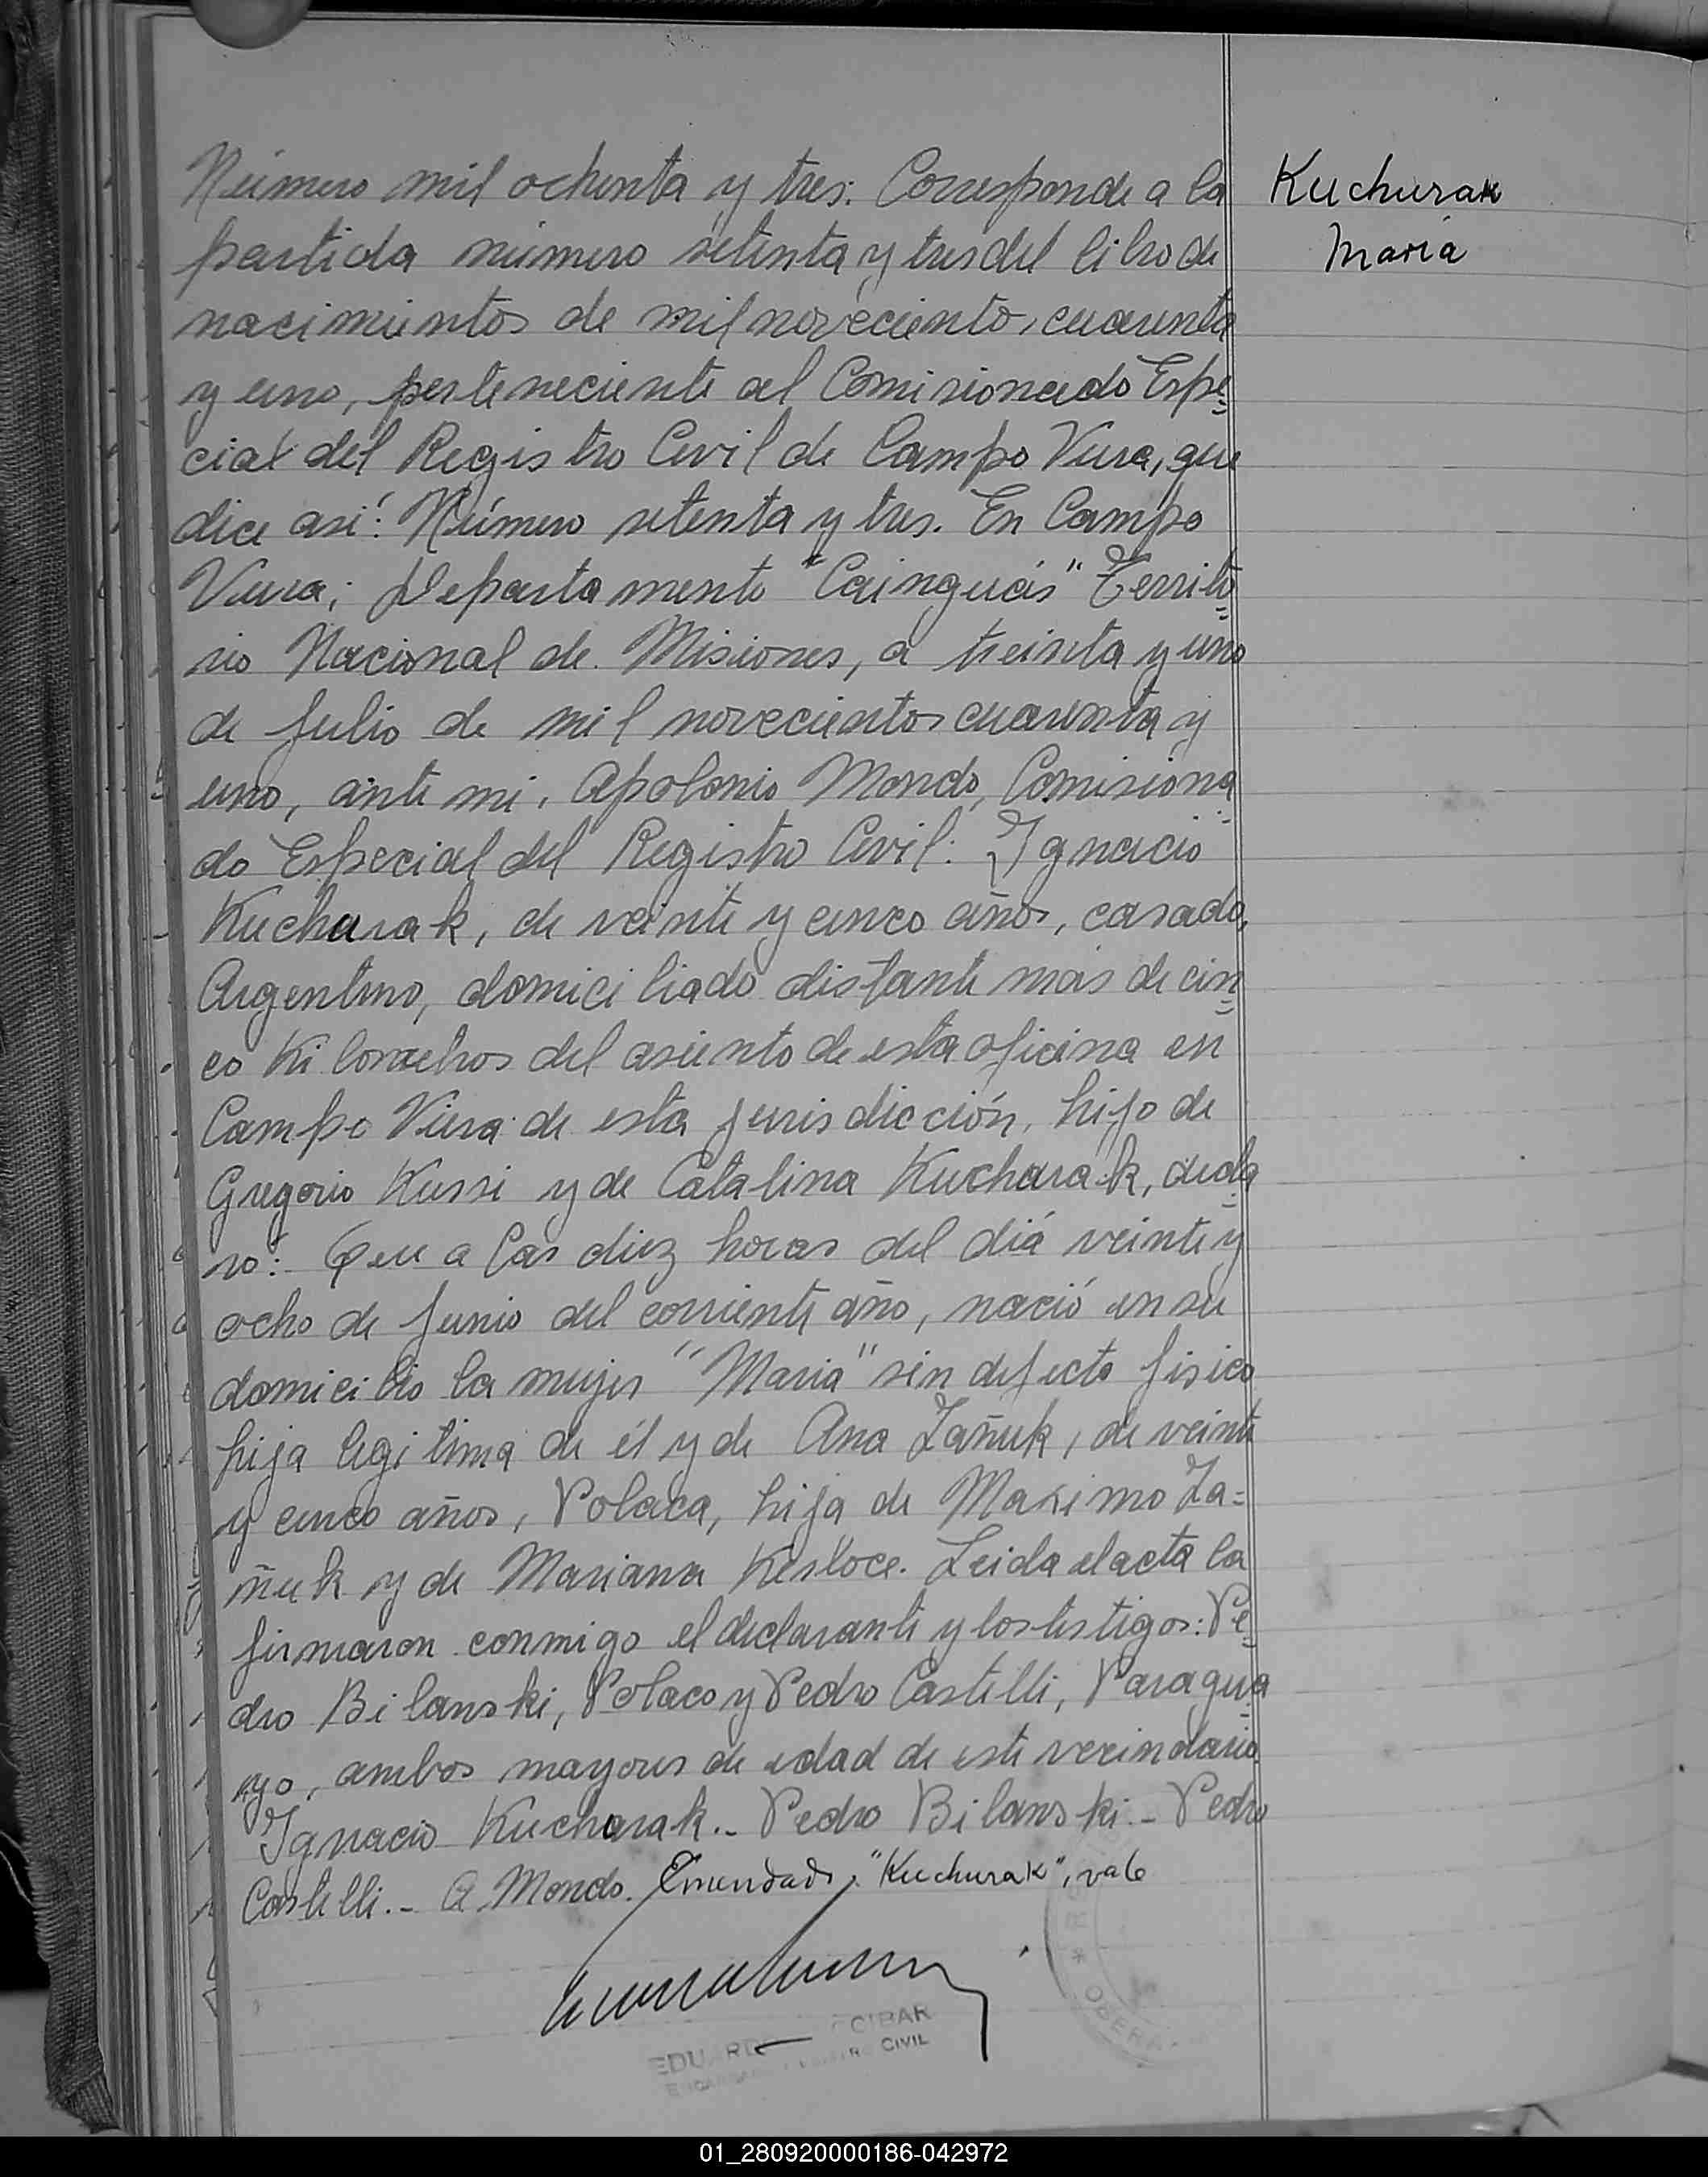 Número mil ochenta y tres: Corresponde a la
partida número setenta y tres del libro de
nacimientos de mil novecientos cuarenta
y uno, perteneciente al Comisionado Espe=
cial del Registro Civil de Campo Viera, que
dice así: Número setenta y tres. En Campo
Viera; Departamento "Cainguás" Territo=
rio Nacional de Misiones, a treinta y uno
de Julio de mil novecientos cuarenta y
uno, ante mi, Apolonio Mondo, Comisiona=
do Especial del Registro Civil: Ignacio
Kuchurak, de veinte y cinco años, casado,
Argentino, domiciliado distante más de cin=
co Kilometros del asiento de esta oficina en
Campo Viera de esta jurisdicción, hijo de
Gregorio Kussi y de Catalina Kuchurak, decla=
ro: Que a las diez horas del diá veinte y
ocho de Junio del corriente año, nació en su
domicilio la mujer "Maria" sin defecto fisico
hija legitima de él y de Ana Zañuk, de veinte
y cinco años, Polaca, hija de Maximo Za=
ñuk y de Mariana Kesloce. Leida el acta la
firmaron conmigo el declarante y los testigos: Pe=
dro Bilanski, Polaco y Pedro Castelli, Paragua=
yo, ambos mayores de edad de este vecindario.
Ignacio Kuchurak.- Pedro Bilanski.- Pedro
Castelli.- A Mondo. Enmendado: "Kuchurak", vale
EDUARD CIBAR
CIVIL
OBERA
Kuchurak
Maria
01_280920000186-042972